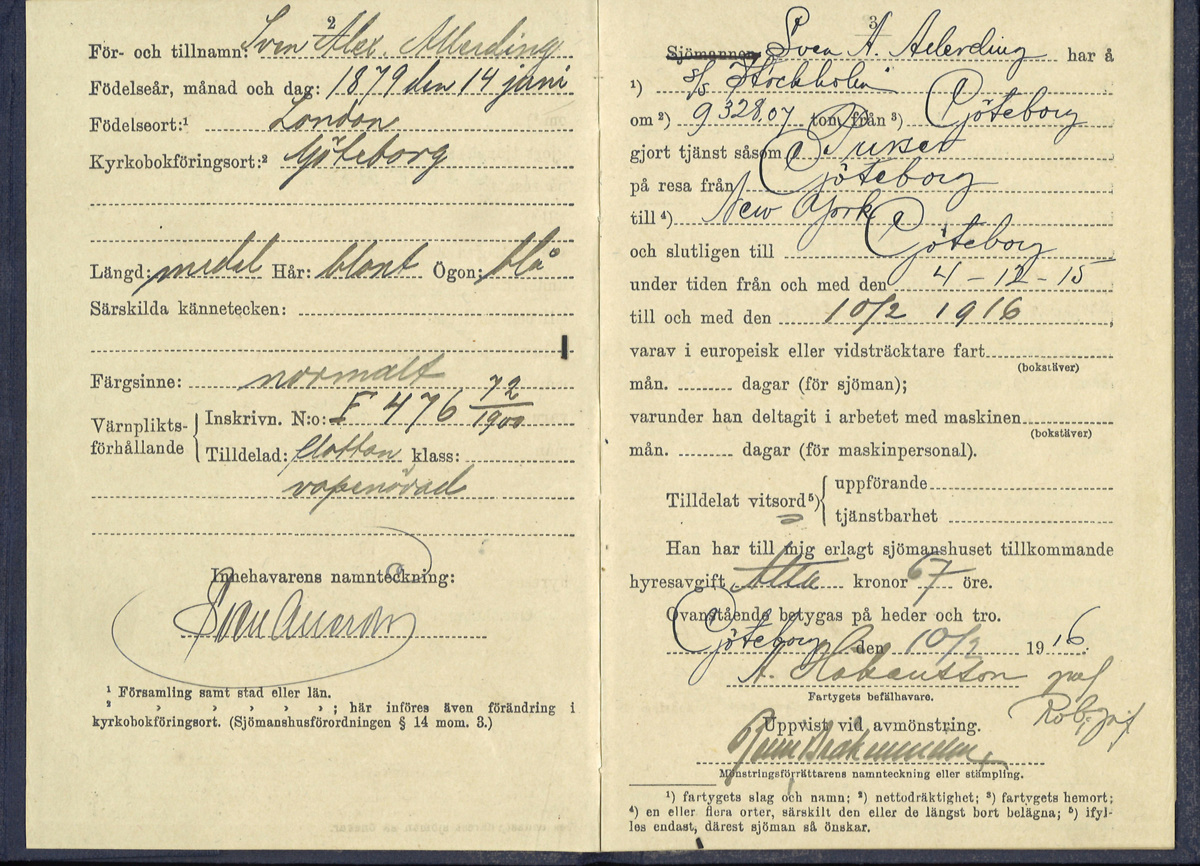 2
För- och tillnamn: Sven Alex. Allerding
Födelseår, månad och dag: 1879 den 14 juni
Födelseort:¹ London
Kyrkobokföringsort:² Göteborg
Längd: medel Hår: blont Ögon: blå
Särskilda kännetecken:
Färgsinne: normalt
Värnplikts-förhållande
Inskrivn. N:o: F 476 72/1900
Tilldelad: flottan klass:
vapenövad
Innehavarens namnteckning:
Sven
¹ Församling samt stad eller län.
² › › › › ›; här införes även förändring i
kyrkobokföringsort. (Sjömanshusförordningen § 14 mom. 3.)
3
Sjömannen Sven A. Allerding har å
¹) s/s Stockholm
om ²) 9328.07 ton från ³) Göteborg
gjort tjänst såsom Purser
på resa från Göteborg
till ⁴) New York
och slutligen till Göteborg
under tiden från och med den 4-12-15
till och med den 10/2 1916,
varav i europeisk eller vidsträcktare fart
(bokstäver)
mån. dagar (för sjöman);
varunder han deltagit i arbetet med maskinen
(bokstäver)
mån. dagar (för maskinpersonal).
Tilldelat vitsord⁵) uppförande
tjänstbarhet
Han har till mig erlagt sjömanshuset tillkommande
hyresavgift Åtta kronor 67 öre.
Ovanstående betygas på heder och tro.
Göteborg den 10/2 1916.
A. Johansson
Fartygets befälhavare.
Uppvist vid avmönstring.
Mönstringsförrättarens namnteckning eller stämpling.
¹) fartygets slag och namn; ²) nettodräktighet; ³) fartygets hemort;
⁴) en eller flera orter, särskilt den eller de längst bort belägna; ⁵) ifyl-
les endast, därest sjöman så önskar.